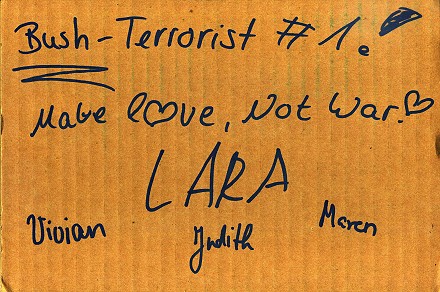 Bush-Terrorist #1.
Make love, Not War.
LARA
Vivian Judith Maren